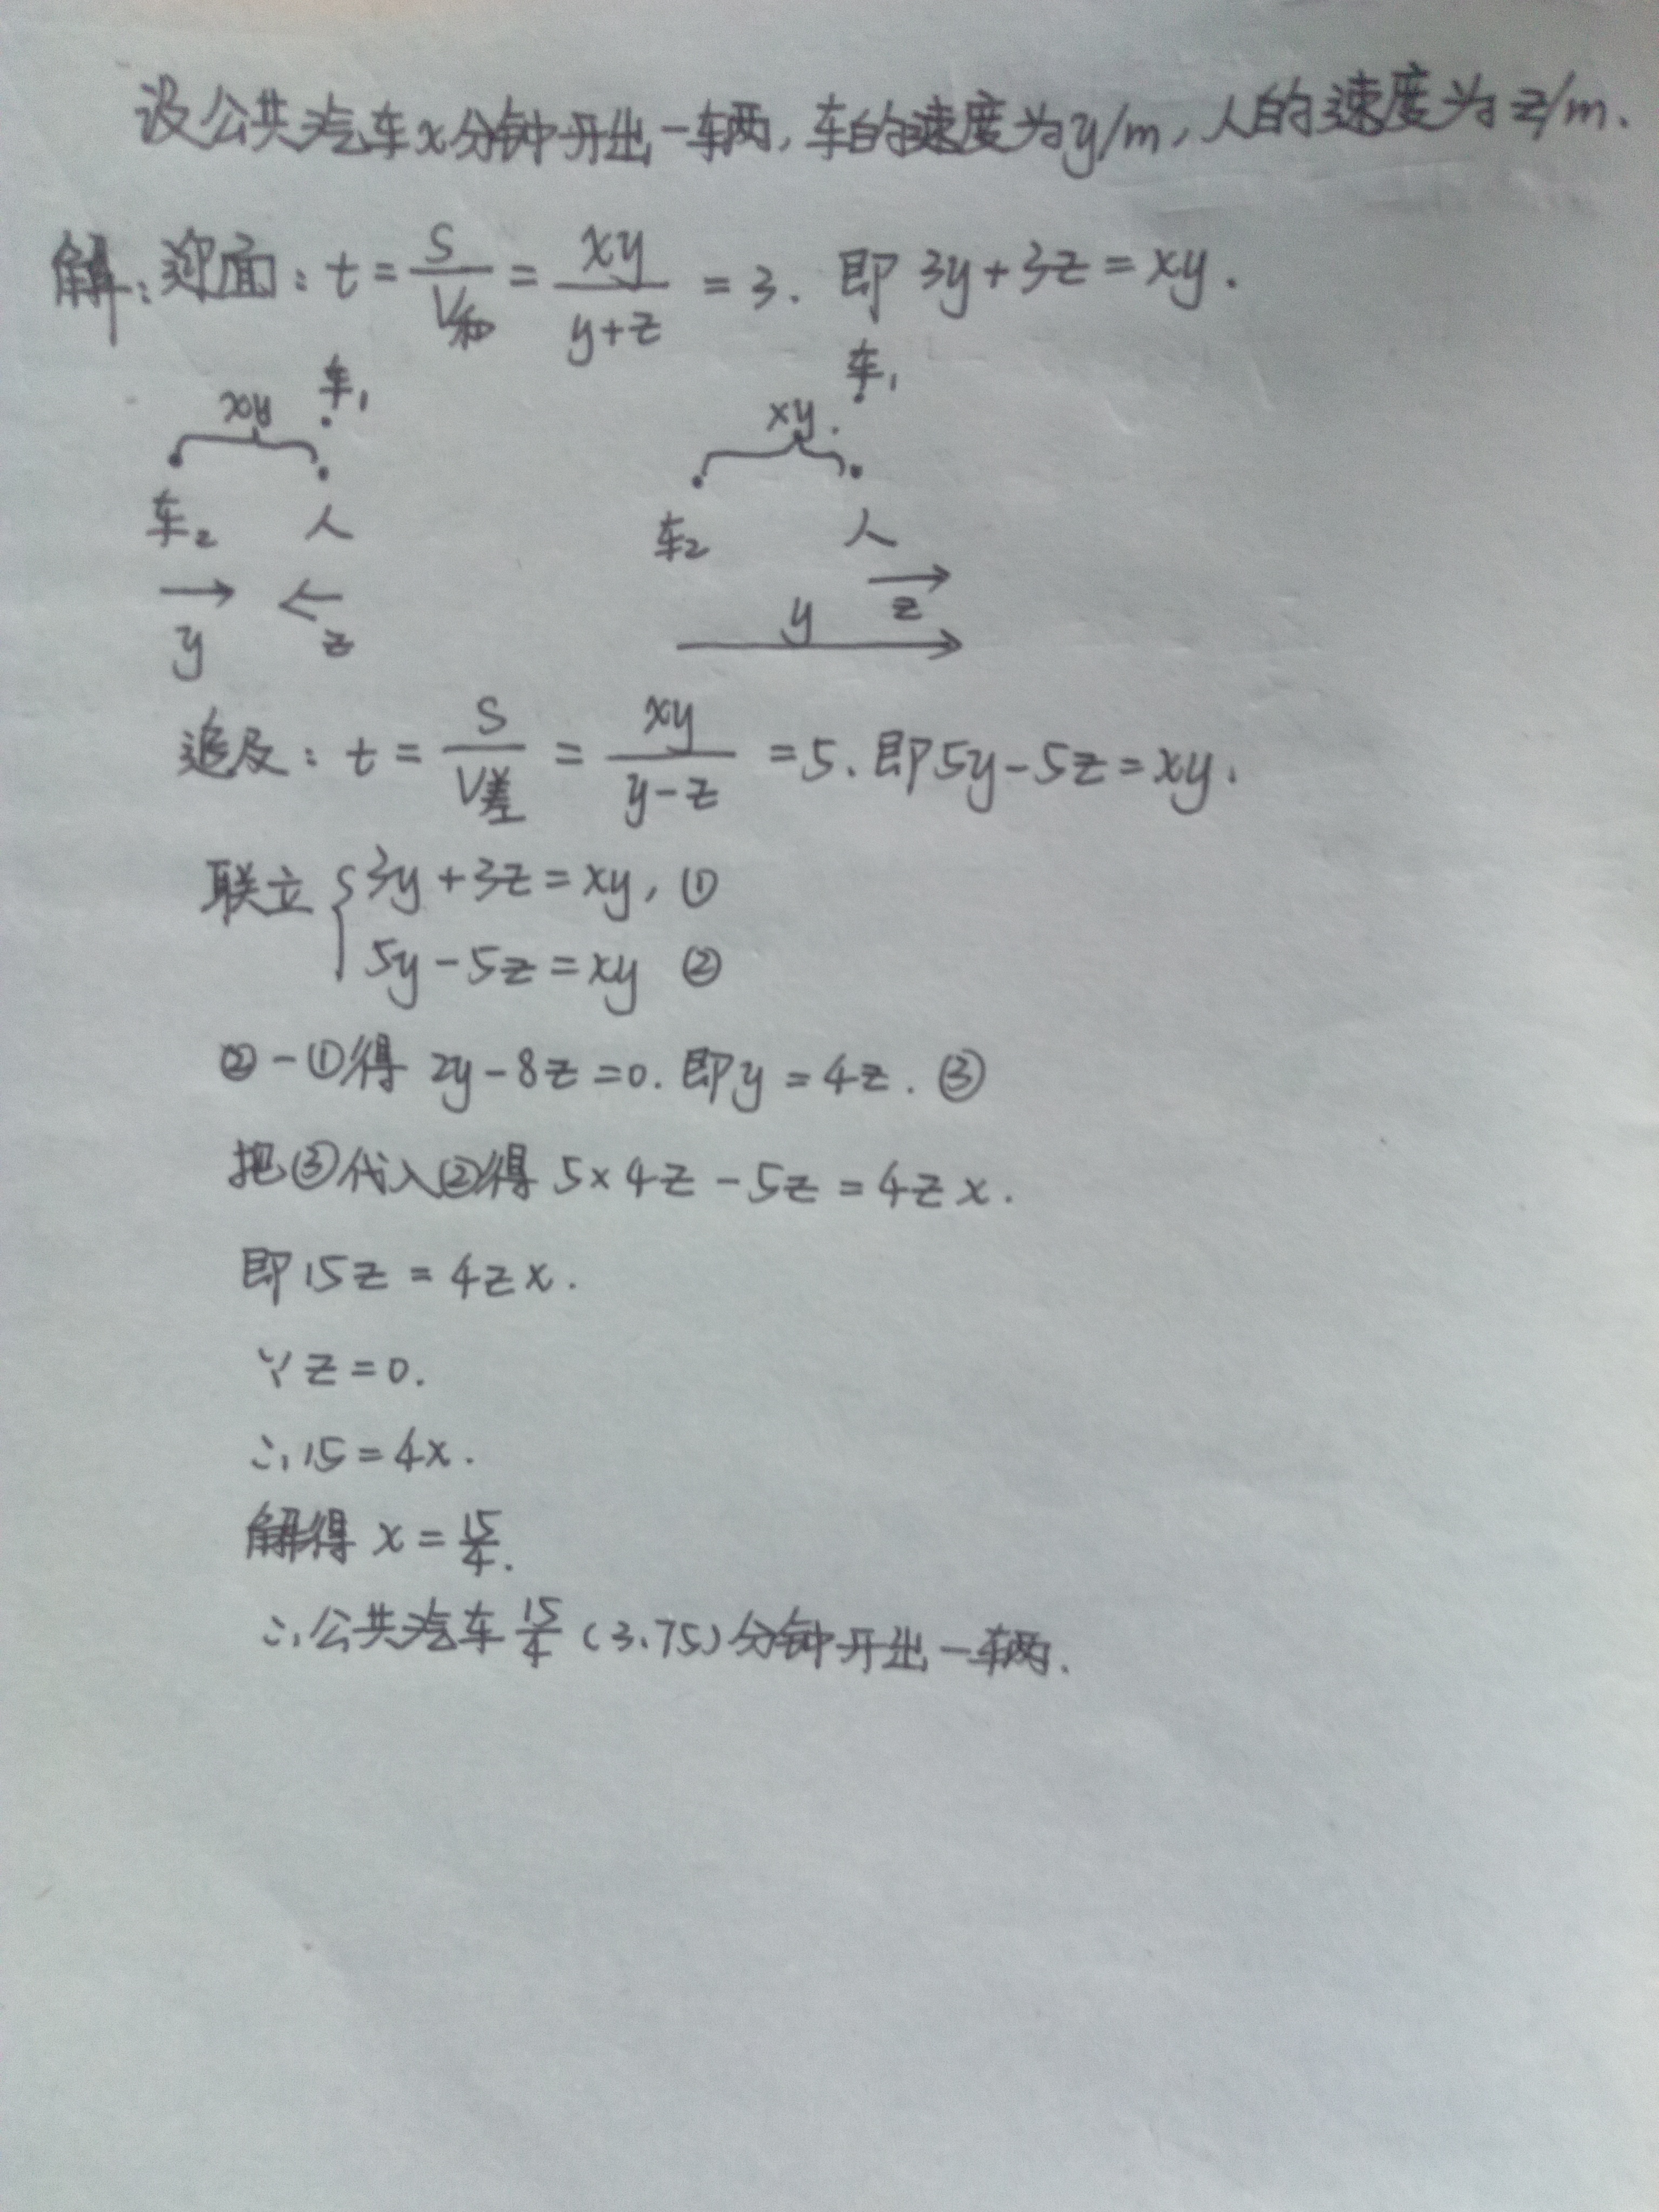 设公共汽车x分钟开出一车两,车的速度为y/m,人的速度为z/m.
解:迎面:t=S/V和=xy/(y+z)=3.即3y+3z=xy.
车₁ 车₁
xy xy.
车₂ 人 车₂ 人
y z y z
追及:t=S/V差=xy/(y-z)=5.即5y-5z=xy.
联立{3y+3z=xy,①
5y-5z=xy ②
②-①得 2y-8z=0.即y=4z.③
把③代入②得 5×4z-5z=4zx.
即15z=4zx.
∵z=0.
∴15=4x.
解得 x=15/4.
∴公共汽车15/4(3.75)分钟开出一车两.